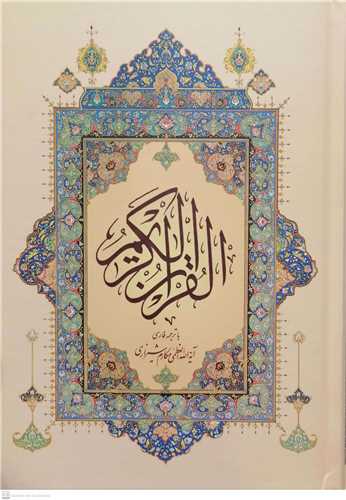 القرآن الكريم
با ترجمه فارسی
آیة الله العظمی مکارم شیرازی